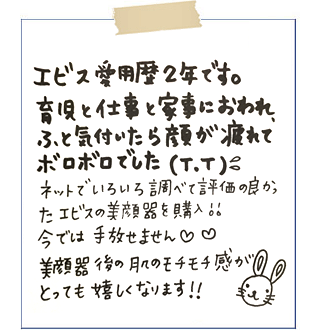 エビス愛用歴2年です。
育児と仕事と家事におわれ、
ふと気付いたら顔が疲れて
ボロボロでした(T.T)
ネットでいろいろ調べて評価の良かっ
たエビスの美顔器を購入!!
今では手放せません♡♡
美顔器後の肌のモチモチ感が
とっても嬉しくなります!!